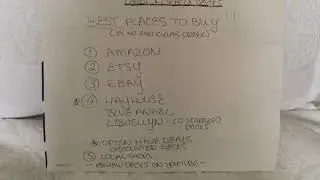 BEST PLACES TO BUY !!!
(IN NO PARTICULAR ORDER)
① AMAZON
② ETSY
③ EBAY
④ HAYHOUSE
BLUE ANGEL
LLEWELLYN
DECKS
OFTEN HAVE DEALS
DISCOUNTED DECKS
⑤ LOCAL SHOPS
- REVIEW DECKS ON YOUTUBE -